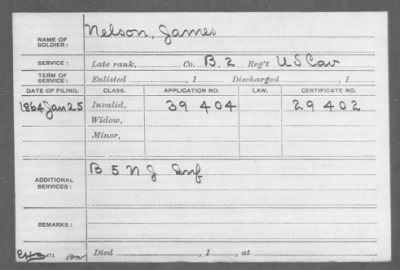 NAME OF SOLDIER: Nelson, James
SERVICE: Late rank, Co. B, 2 Reg't U S Cav
TERM OF SERVICE: Enlisted , 1 Discharged , 1
DATE OF FILING. CLASS. APPLICATION NO. LAW. CERTIFICATE NO.
1864 Jan 25 Invalid, 39 404 29 402
Widow,
Minor,
ADDITIONAL SERVICES: B 5 N J Inf
REMARKS:
Died , 1 , at